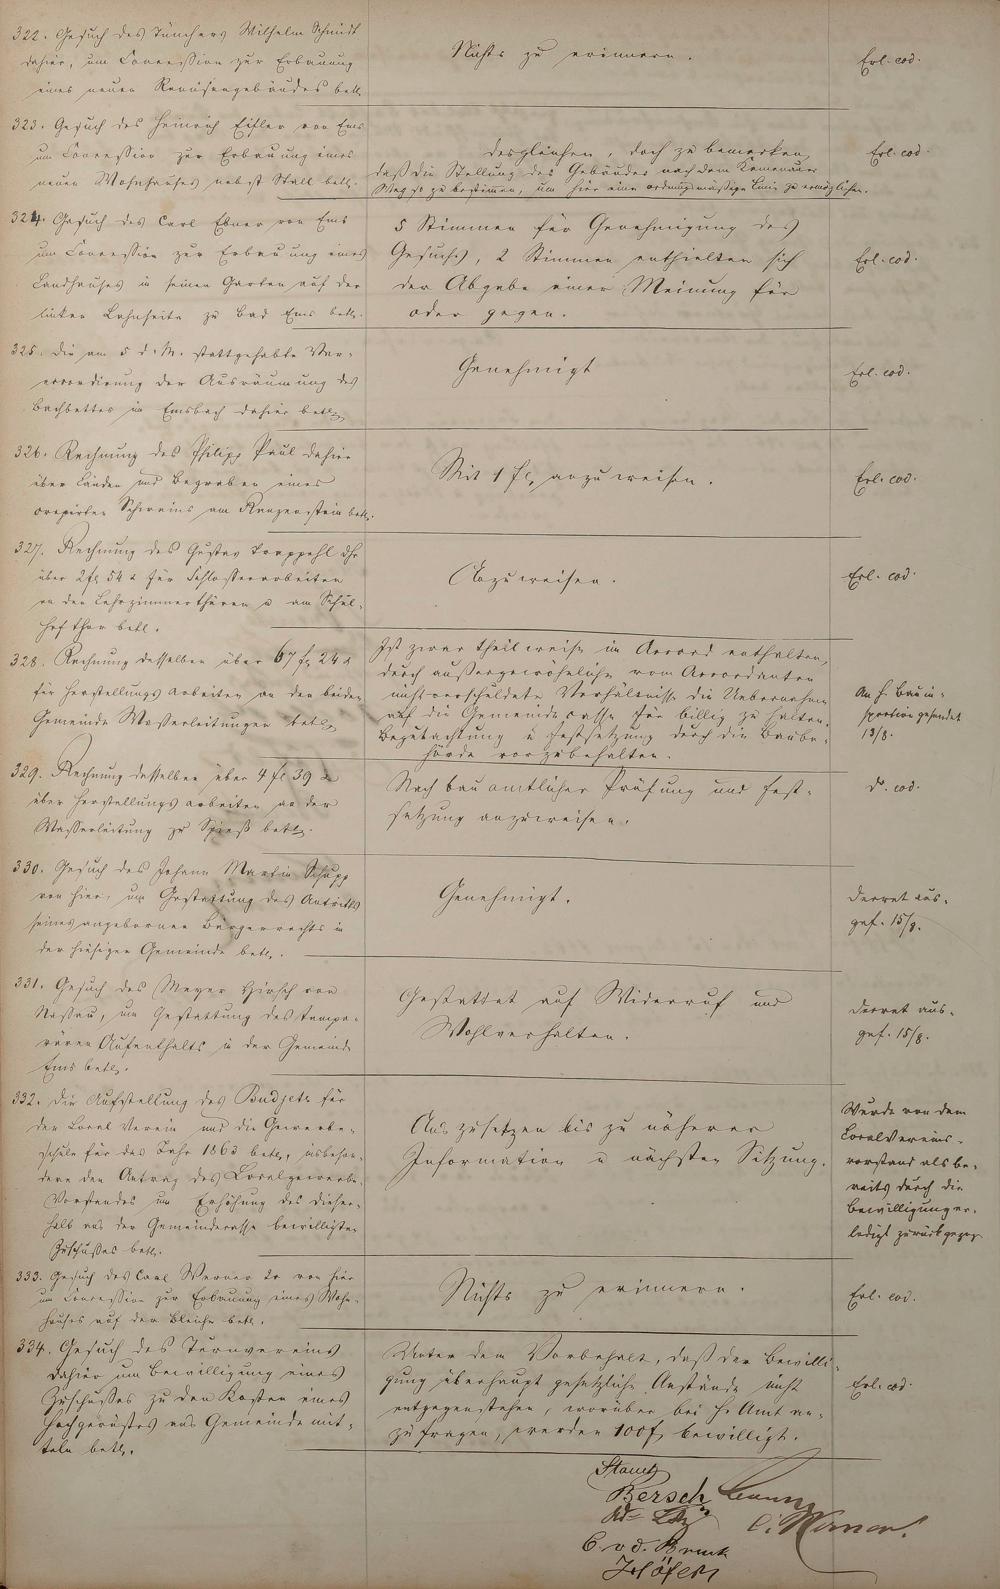 322. Gesuch des Tünchers Wilhelm Schmidt
dahier, um Concession zur Erbauung
eines neuen Remisengebäudes betr.
Nichts zu erinnern.
Erl. eod.
323. Gesuch des Heinrich Eifler von Ems
um Concession zur Erbauung eines
neuen Wohnhauses nebst Stall betr.
desgleichen, doch zu bemerken,
daß die Stellung des Gebäudes nach dem Kemenauer
Weg so zu bestimen, um hier eine ordnungsmäßige Linie zu ermöglichen.
Erl. eod.
324. Gesuch des Carl Ebner von Ems
um Concession zur Erbauung eines
Landhauses in seinen Garten auf der
linken Lahnseite zu Bad Ems betr.
5 Stimmen für Genehmigung des
Gesuchs, 2 Stimmen enthielten sich
der Abgabe einer Meinung für
oder gegen.
Erl. eod.
325. Die am 5 d. M. stattgehabte Ver-
accordirung der Ausräumung des
Bachbettes im Emsbach dahier betr.
Genehmigt
Erl. eod.
326. Rechnung des Philipp Paul dahier
über Länden und Begraben eines
crepirten Schweins am Kranzenstein betr.
Mit 1 fl. anzuweisen.
Erl. eod.
327. Rechnung des Gustav dhr
über 2 fl 54 x für Schlosserarbeiten
an den Lehrzimmerthüren u am Schul-
hofthor betr.
Anzuweisen.
Erl. eod.
328. Rechnung desselben über 67 fl 24 x
für Herstellungsarbeiten an den beiden
Gemeinde Wasserleitungen betr.
Ist zwar theilweise im Accord enthalten,
durch außergewöhnliche vom Accordanten
nicht verschuldete Verhältnisse die Uebernahme
auf die Gemeindecasse für billig zu halten.
Begutachtung u Festsetzung durch die Baube-
hörde vorzubehalten.
An H. Bauin-
spection gesendet
13/8.
329. Rechnung desselben über 4 fl 39 x
über Herstellungsarbeiten an der
Wasserleitung zu Spieß betr.
Nach bauamtlicher Prüfung und Fest-
setzung anzuweisen.
do. eod.
330. Gesuch des Johann Martin Schupp
von hier, um Gestattung des Antritts
seines angebornen Bürgerrechts in
der hiesigen Gemeinde betr.
Genehmigt.
Decret aus-
gef. 15/8.
331. Gesuch des Meyer Hirsch von
Nassau, um Gestattung des tempo-
rären Aufenthalts in der Gemeinde
Ems betr.
Gestattet auf Widerruf und
Wohlverhalten.
Decret aus-
gef. 15/8.
332. Die Aufstellung des Budjets für
den Local Verein und die Gewerbe-
schule für das Jahr 1863 betr., insbeson-
dere den Antrag des Localgewerbe
Vorstandes um Erhöhung des dieser-
halb aus der Gemeindecasse bewilligten
Zuschußes betr.
Auszusetzen bis zu näherer
Information u nächsten Sitzung.
Wurde von dem
Localvereins-
vorstand als be-
reits durch die
Bewilligung er-
ledigt zurückgezog.
333. Gesuch des Carl Werner von hier
um Concession zur Erbauung eines Wohn-
hauses auf der Bleiche betr.
Nichts zu erinnern.
Erl. eod.
334. Gesuch des Turnvereins
dahier um Bewilligung eines
Zuschusses zu den Kosten eines
Hochgerüstes aus Gemeindemit-
teln betr.
Unter dem Vorbehalt, daß der Bewilli-
gung überhaupt gesetzliche Anstände nicht
entgegenstehen, worüber bei H. Amt an-
zufragen, werden 100 f bewilligt.
Erl. eod.
Bersch
C. Werner.
C. v. d. Bruck
Höfer